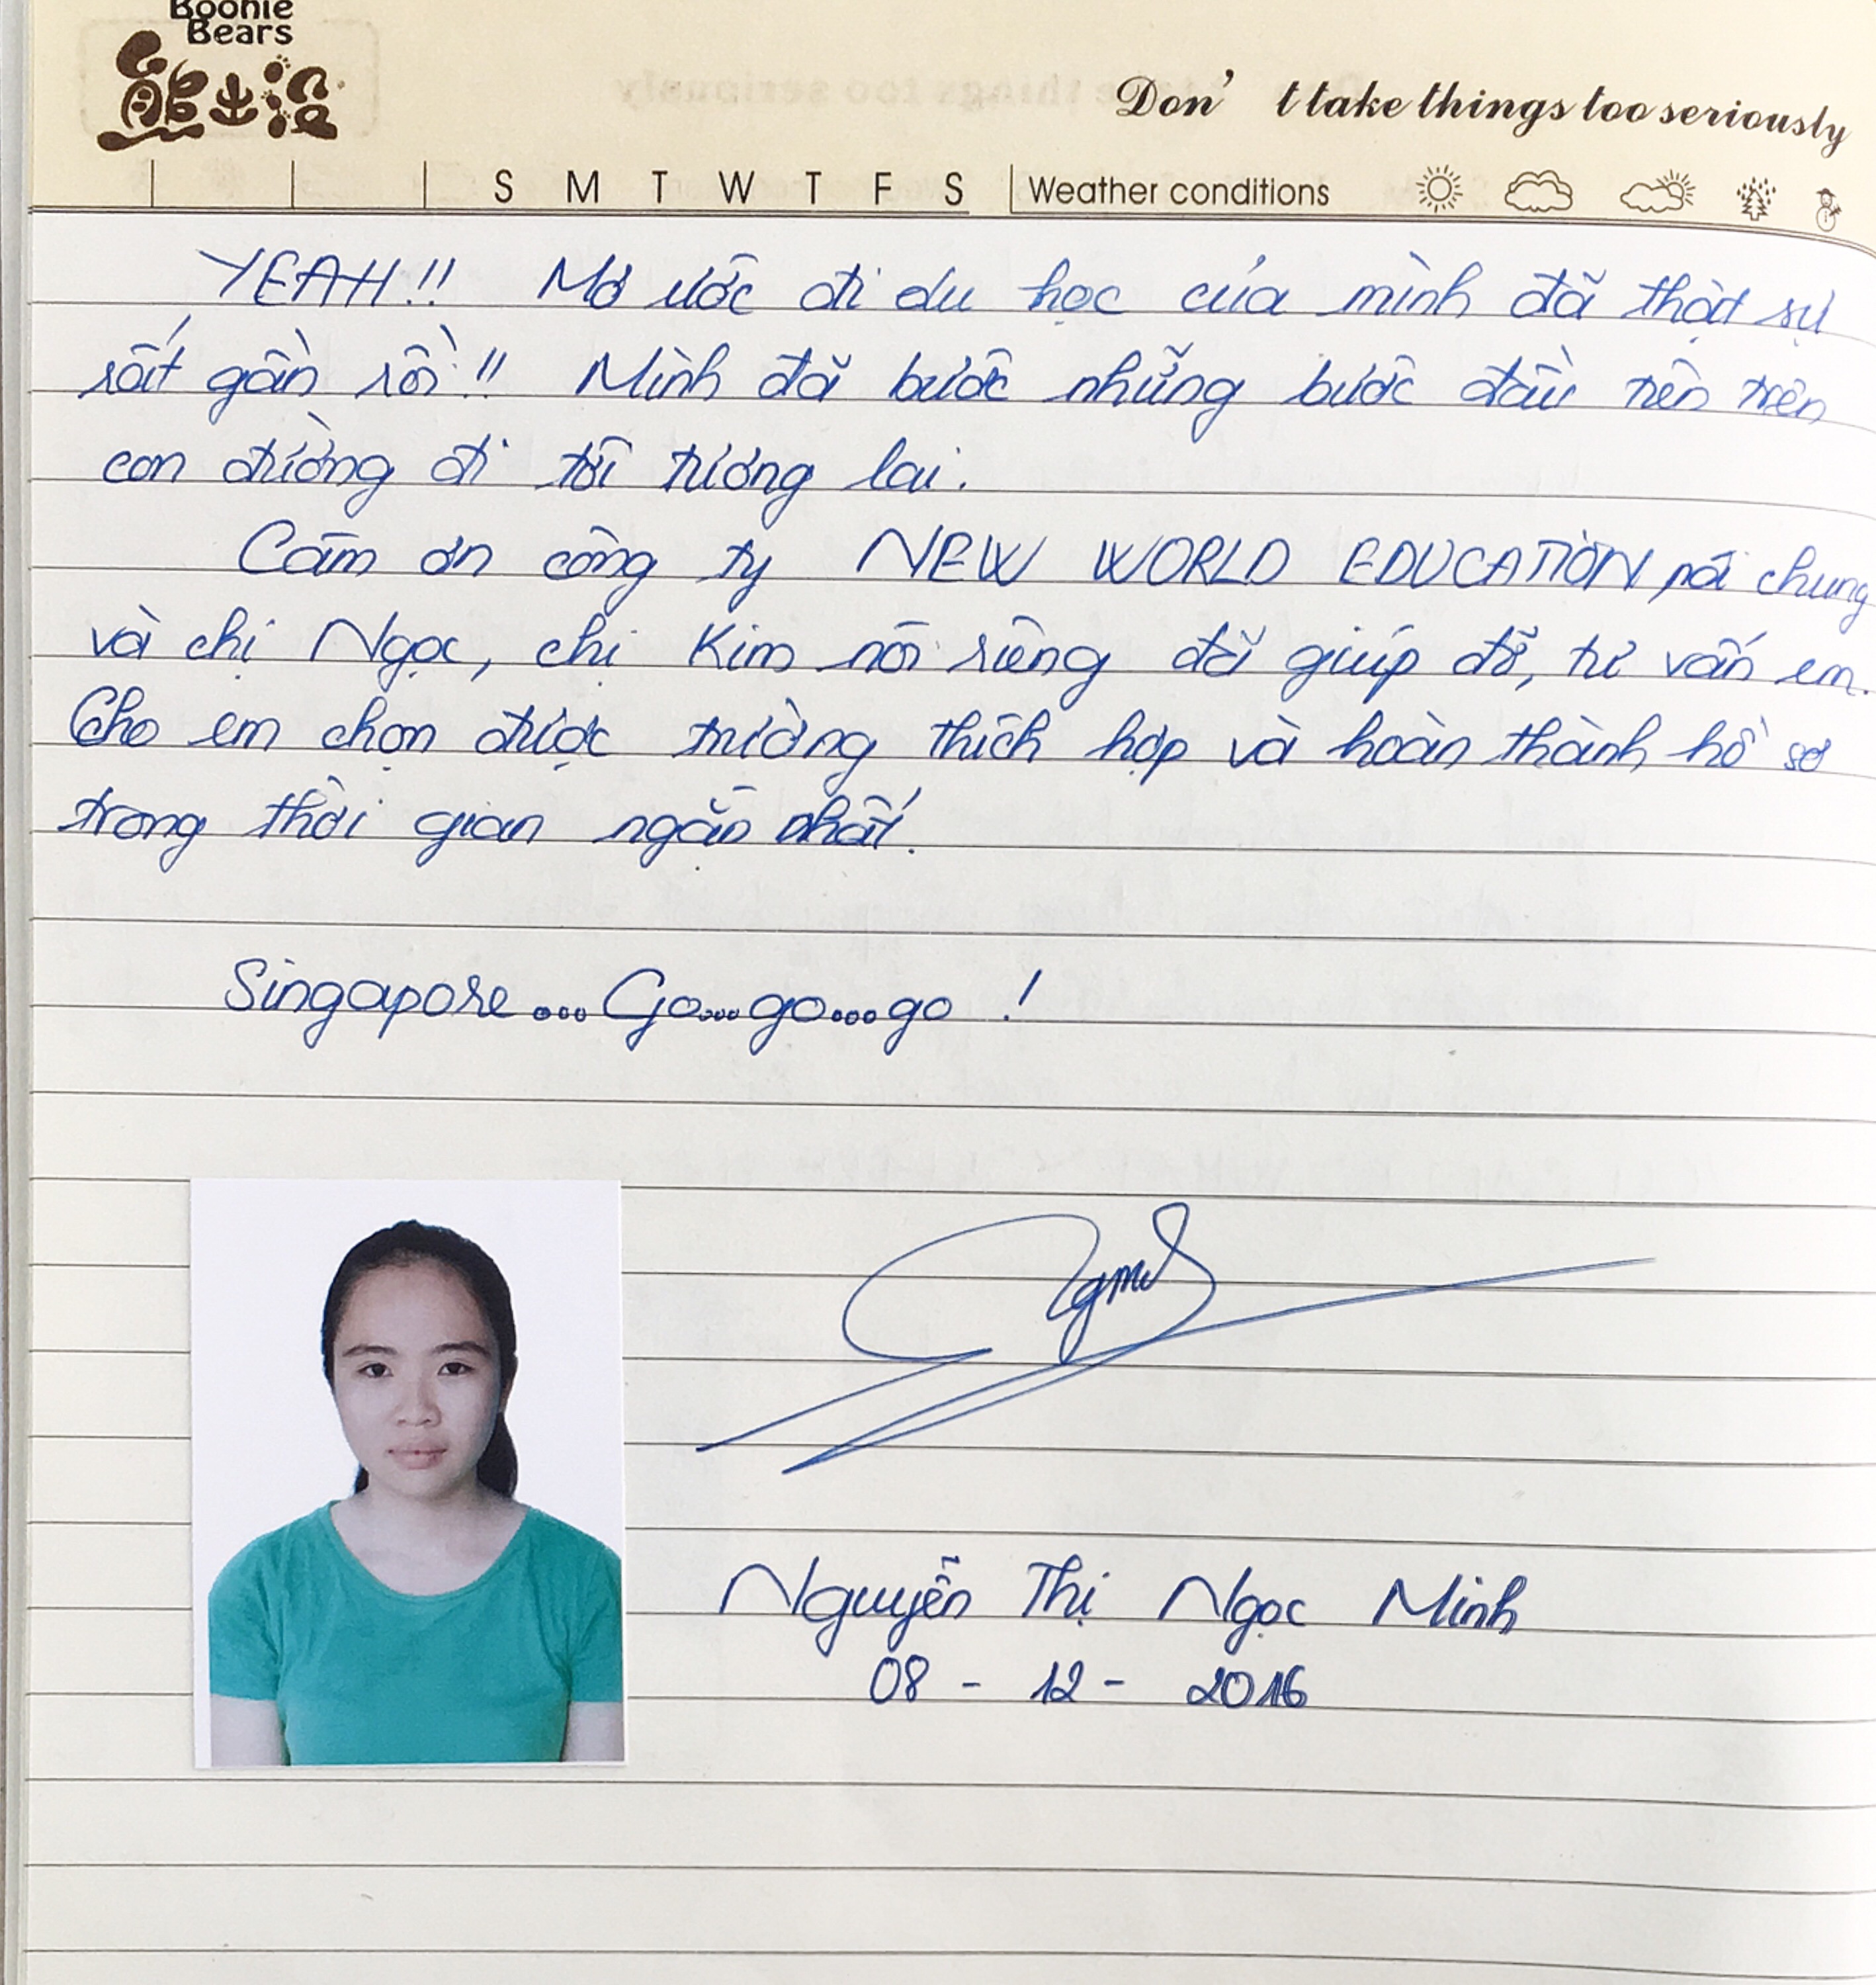 Boonie
Bears
熊出没
Don' t take things too seriously
S M T W T F S Weather conditions
YEAH!! Mơ ước đi du học của mình đã thật sự
rất gần rồi!! Mình đã bước những bước đầu tiên trên
con đường đi tới tương lai.
Cảm ơn công ty NEW WORLD EDUCATION nói chung
và chị Ngọc, chị Kim nói riêng đã giúp đỡ, tư vấn em.
Cho em chọn được trường thích hợp và hoàn thành hồ sơ
trong thời gian ngắn nhất.
Singapore...Go...go...go !
Nguyễn Thị Ngọc Minh
08 - 12 - 2016